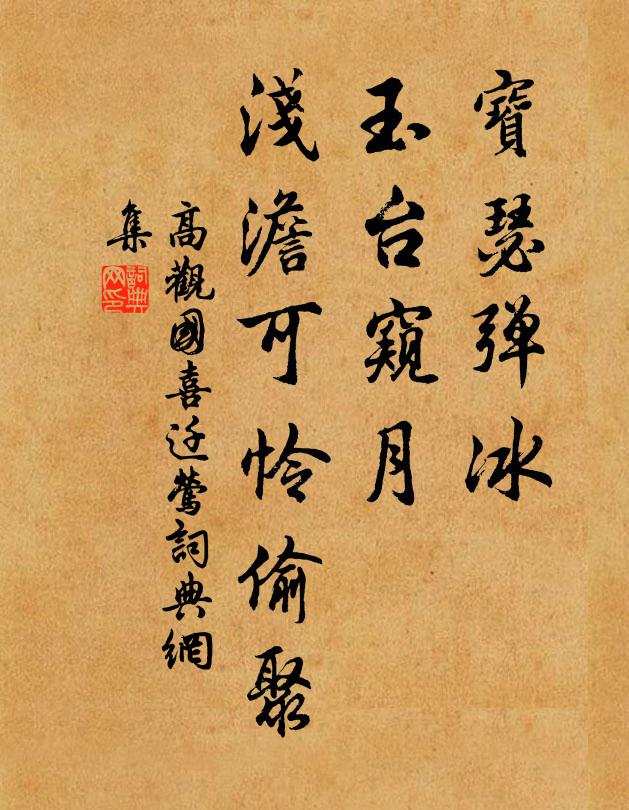 寶瑟弹冰
玉台窺月
淺澹可怜偷聚
高觀國喜迁鶯詞典網
集
詞典
网印